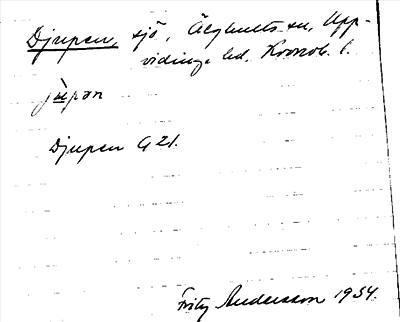 Djupen, sjö, Älghults sn, Upp-
vidinge hd, Kronob. l.
jùpən
Djupen G 21.
Fritz Andersson 1934.